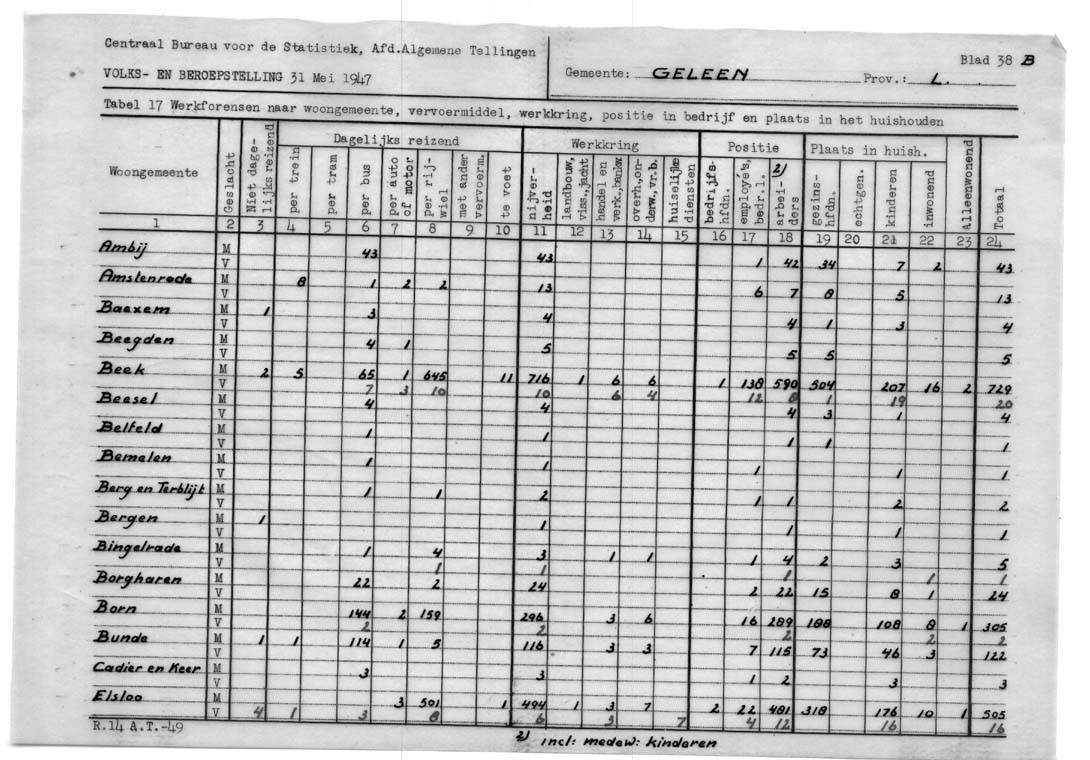 Centraal Bureau voor de Statistiek, Afd.Algemene Tellingen
VOLKS- EN BEROEPSTELLING 31 Mei 1947
Gemeente: GELEEN Prov.: L.
Blad 38 B
Tabel 17 Werkforensen naar woongemeente, vervoermiddel, werkkring, positie in bedrijf en plaats in het huishouden
Woongemeente Geslacht Niet dage-lijks reizend Dagelijks reizend Werkkring Positie Plaats in huish. Alleenwonend Totaal
per trein per tram per bus per auto of motor per rij-wiel met ander vervoerm. te voet nijver-heid landbouw, viss.,jacht handel en verk.,bankw. overh.,on-derw.,vr.b. huiselijke diensten bedrijfs-hfdn. employé's, bedr.l. 2) arbei-ders gezins-hfdn. echtgen. kinderen inwonend
1 2 3 4 5 6 7 8 9 10 11 12 13 14 15 16 17 18 19 20 21 22 23 24
Ambij M 43 43 1 42 34 7 2 43
V
Amstenrade M 8 1 2 2 13 6 7 8 5 13
V
Baexem M 1 3 4 4 1 3 4
V
Beegden M 4 1 5 5 5 5
V
Beek M 2 5 65 1 645 11 716 1 6 6 1 138 590 504 207 16 2 729
V 7 3 10 10 6 4 12 8 1 19 20
Beesel M 4 4 4 3 1 4
V
Belfeld M 1 1 1 1 1
V
Bemelen M 1 1 1 1 1
V
Berg en Terblijt M 1 1 2 1 1 2 2
V
Bergen M 1 1 1 1 1
V
Bingelrade M 1 4 3 1 1 1 4 2 3 5
V 1 1 1 1 1
Borgharen M 22 2 24 2 22 15 8 1 24
V
Born M 144 2 159 296 3 6 16 289 188 108 8 1 305
V 2 2 2 2 2
Bunde M 1 1 114 1 5 116 3 3 7 115 73 46 3 122
V
Cadier en Keer M 3 3 1 2 3 3
V
Elsloo M 3 501 1 494 1 3 7 2 22 481 318 176 10 1 505
V 4 1 3 8 6 3 7 4 12 16 16
R.14 A.T.-49
2) incl: medew: kinderen